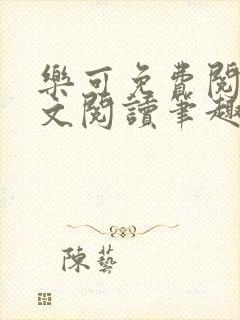 樂可免費閱
文閱讀筆趣
陳藝